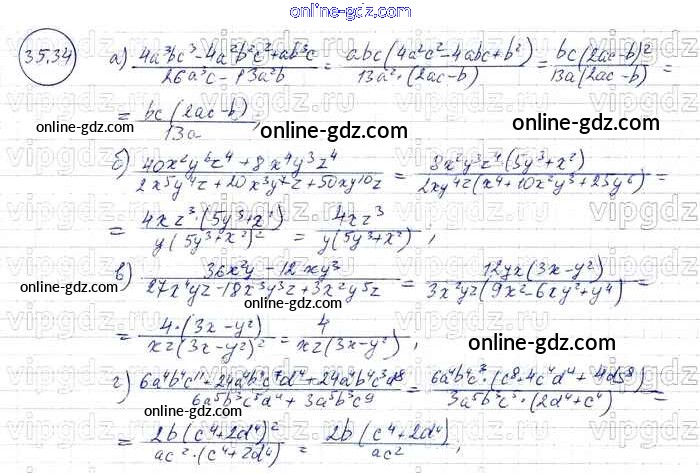 online-gdz.com
35.34
а) (4a³bc³ - 4a²b²c² + ab³c)/(26a³c - 13a²b) = abc(4a²c² - 4abc + b²)/(13a²·(2ac - b)) = bc(2ac - b)²/(13a(2ac - b)) =
= bc(2ac - b)/(13a);
online-gdz.com
online-gdz.com
б) (40x²y⁶z⁴ + 8x⁴y³z⁴)/(2x⁵y⁴z + 20x³y⁷z + 50xy¹⁰z) = 8x²y³z⁴(5y³ + x²)/(2xy⁴z(x⁴ + 10x²y³ + 25y⁶)) =
= 4xz³·(5y³ + x²)/(y(5y³ + x²)²) = 4xz³/(y(5y³ + x²));
online-gdz.com
в) (36x²y - 12xy³)/(27x⁴yz - 18x³y³z + 3x²y⁵z) = 12yx(3x - y²)/(3x²yz(9x² - 6xy² + y⁴)) =
online-gdz.com
= 4·(3x - y²)/(xz(3x - y²)²) = 4/(xz(3x - y²));
online-gdz.com
г) (6a⁴b⁴c¹¹ + 24a⁴b⁴c⁷d⁴ + 24a⁴b⁴c³d⁸)/(6a⁵b³c⁵d⁴ + 3a⁵b³c⁹) = 6a⁴b⁴c³·(c⁸ + 4c⁴d⁴ + 4d⁸)/(3a⁵b³c⁵·(2d⁴ + c⁴)) =
online-gdz.com
online-gdz.com
= 2b(c⁴ + 2d⁴)²/(ac²·(c⁴ + 2d⁴)) = 2b(c⁴ + 2d⁴)/(ac²);
online-gdz.com